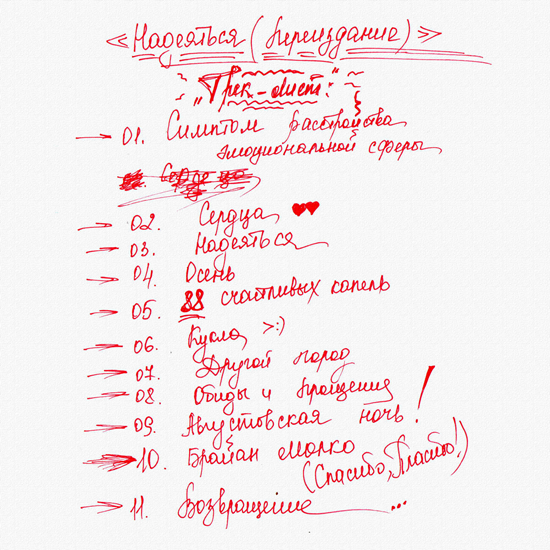 «Надеяться (Переиздание)»
"Трек-лист:"
→ 01. Симптом расстройства
эмоциональной сферы
→ 02. Сердца ♥♥
→ 03. Надеяться
→ 04. Осень
→ 05. 88 счастливых капель
→ 06. Кукла >:)
→ 07. Другой город
→ 08. Обиды и прощения
→ 09. Августовская ночь!
→ 10. Брайан Молко
(Спасибо, Пласибо!)
→ 11. Возвращение...